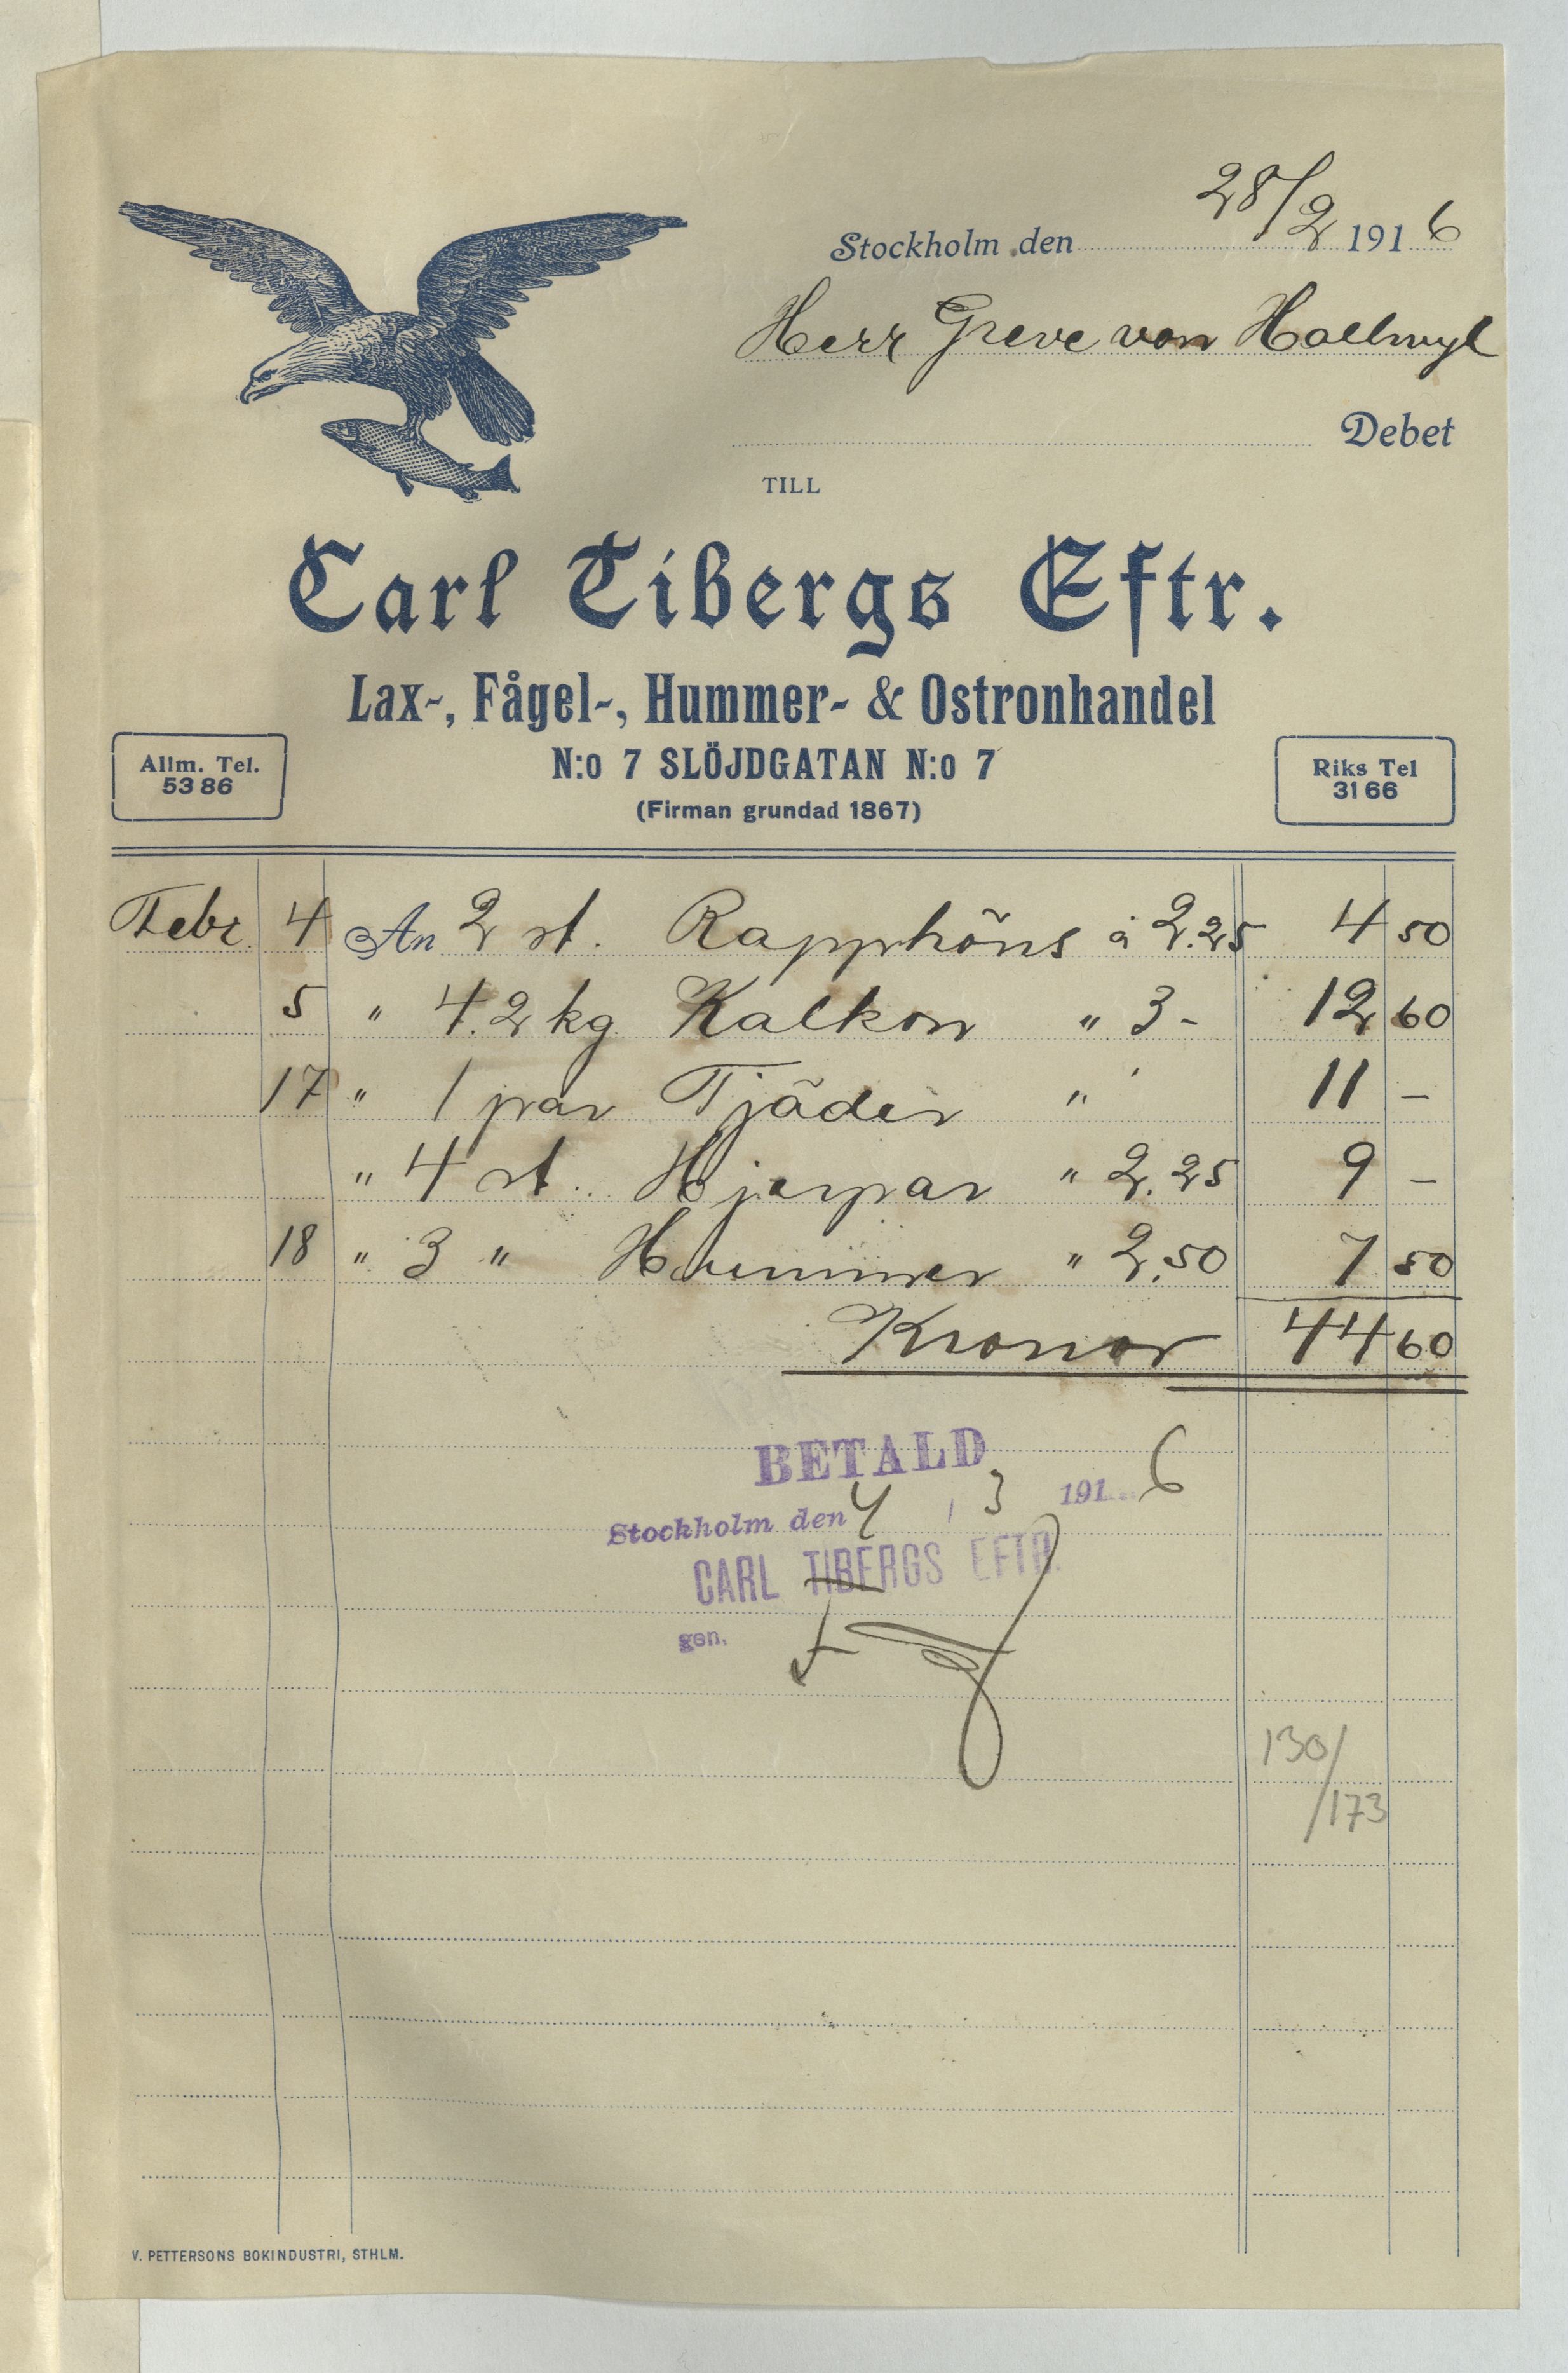 Stockholm den 28/2 1916
Herr Greve von Hallwyl
Debet
TILL
Carl Tibergs Eftr.
Lax-, Fågel-, Hummer- & Ostronhandel
N:o 7 SLÖJDGATAN N:o 7
(Firman grundad 1867)
Allm. Tel.
5386
Riks Tel
3166
Febr. 4 An 2 st. Rapphöns à 2.25 4 50
5 " 4.2 kg Kalkon " 3- 12 60
17 " 1 par Tjäder " 11 -
" 4 st. Hjerpar " 2.25 9 -
18 " 3 " Hummer " 2,50 7 50
Kronor 44 60
BETALD
Stockholm den 4 / 3 1916
CARL TIBERGS EFTR.
gen.
130/
/173
V. PETTERSONS BOKINDUSTRI, STHLM.